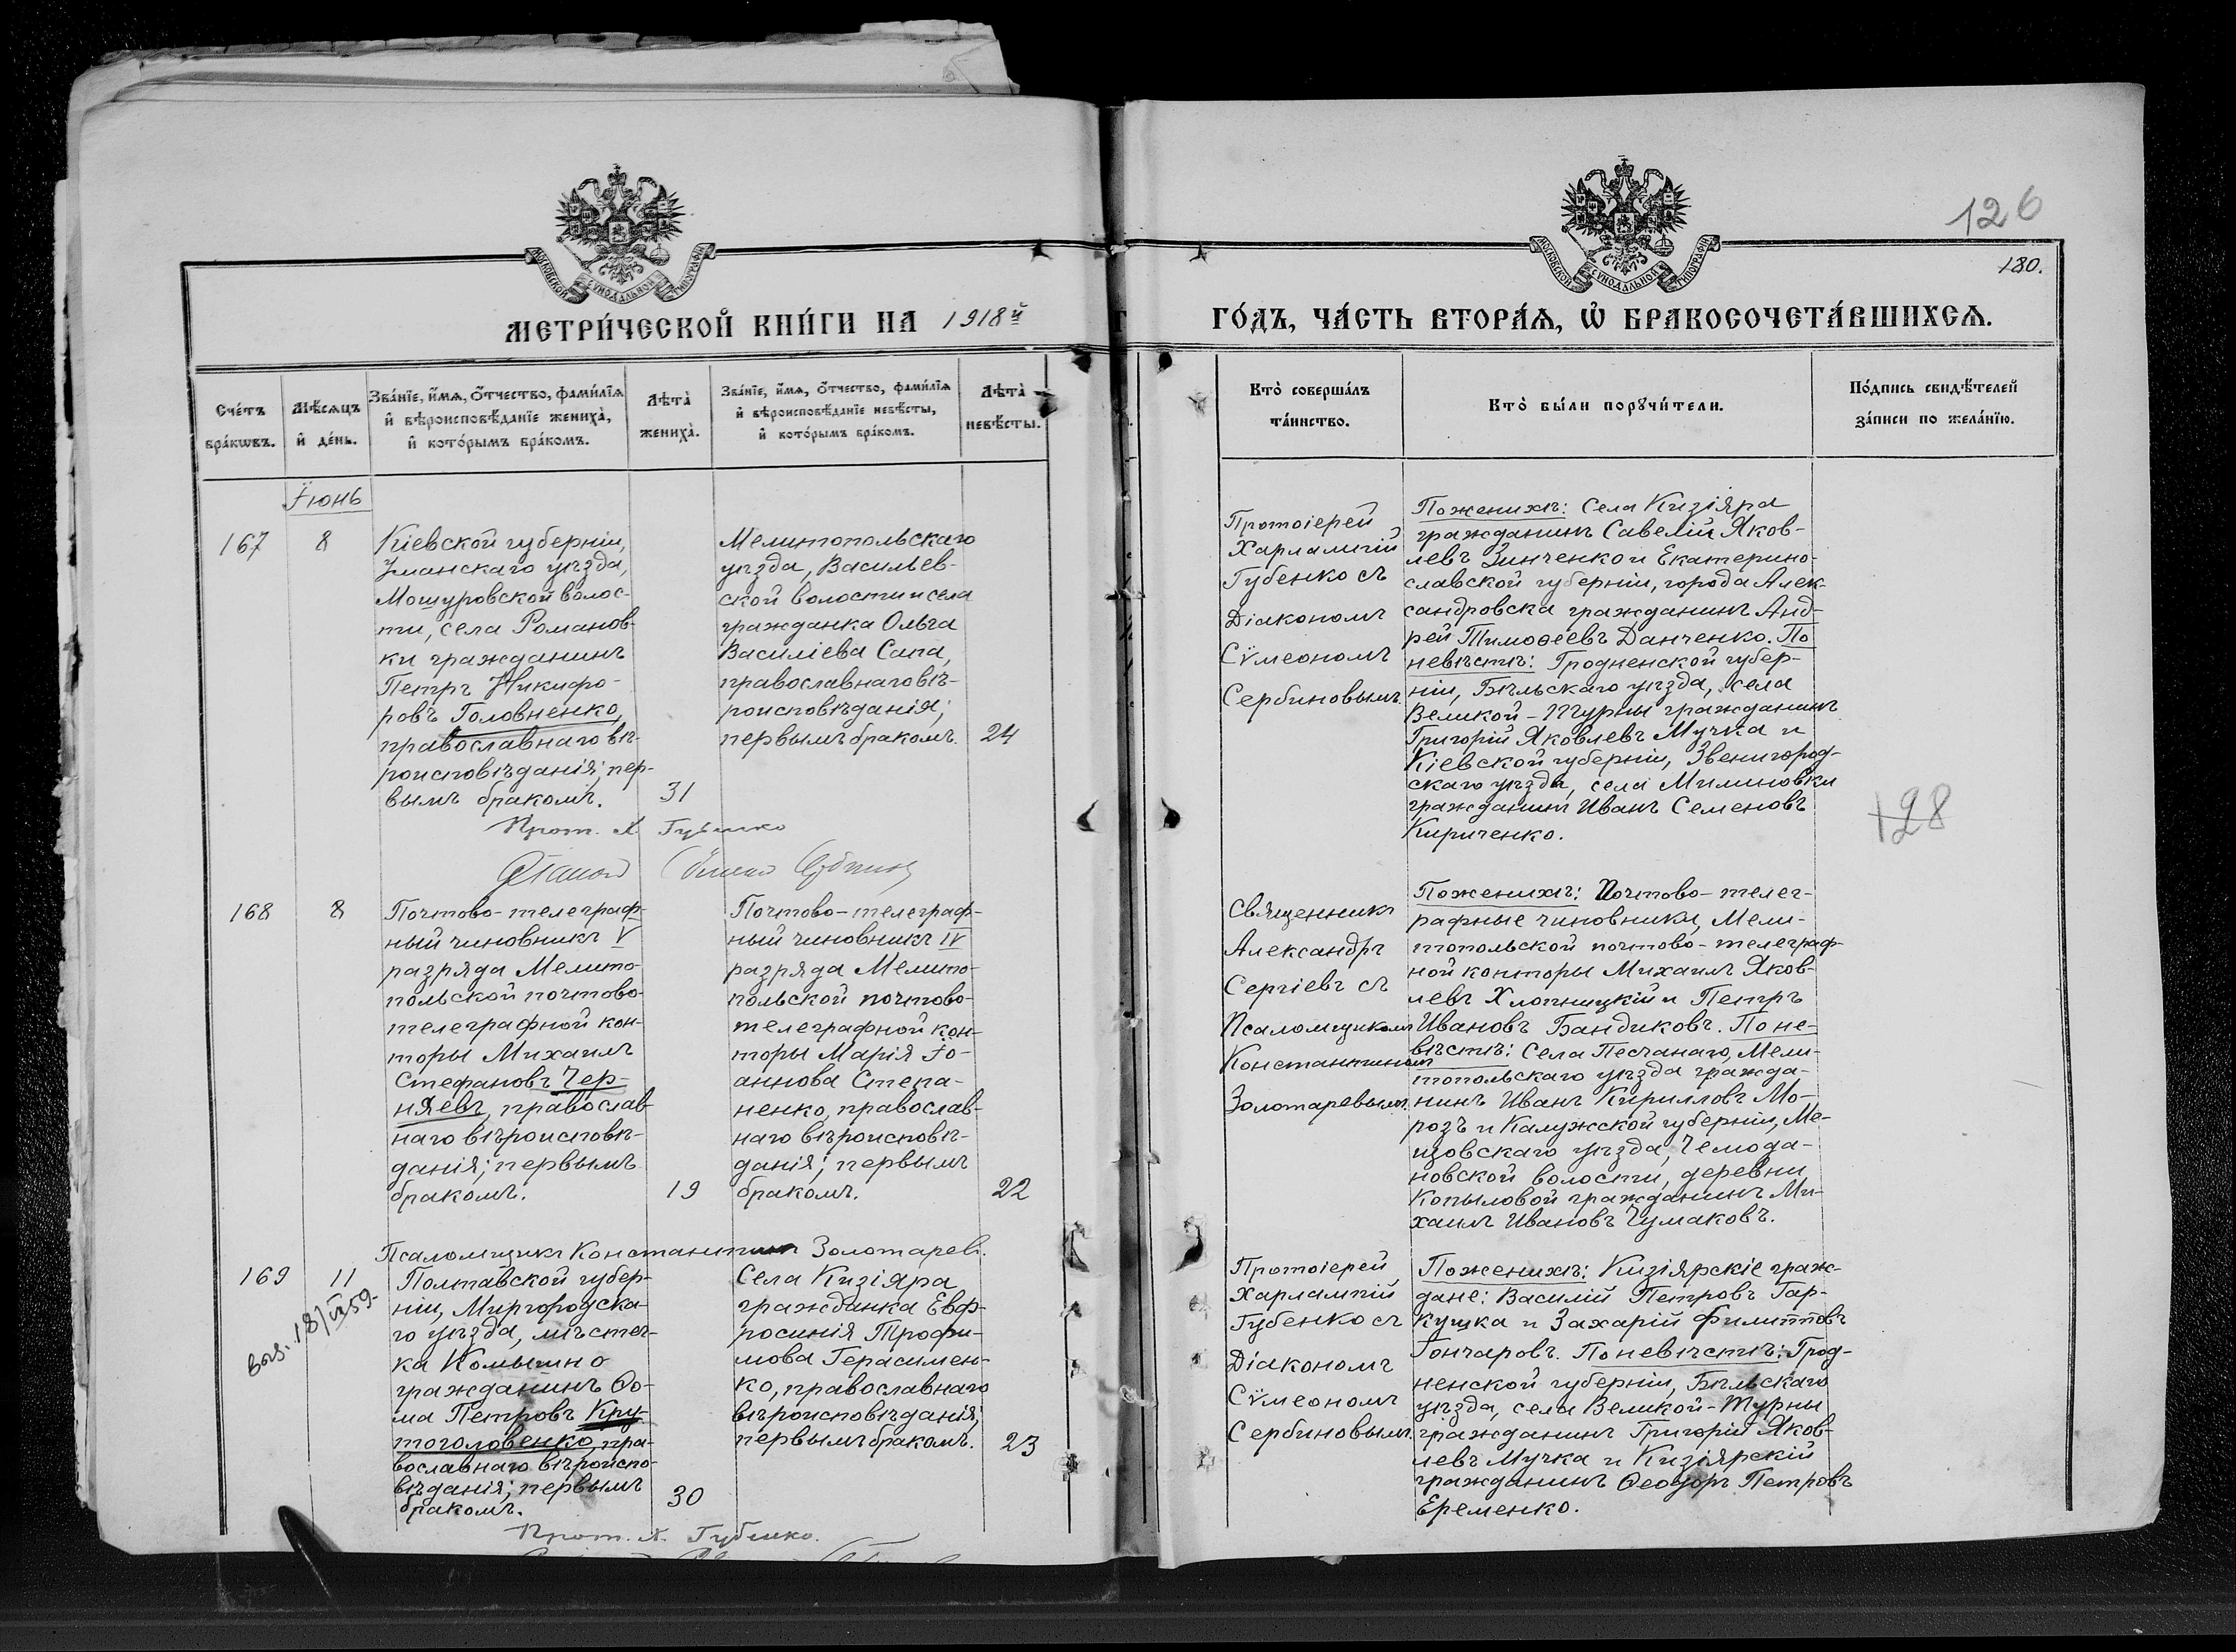 126
180.
МОСКОВСКОЙ СѴНОДАЛЬНОЙ ТИПОГРАФІИ
МОСКОВСКОЙ СѴНОДАЛЬНОЙ ТИПОГРАФІИ
МЕТРИ́ЧЕСКОЙ КНИ́ГИ НА 1918й
ГО́ДЪ, ЧА́СТЬ ВТОРА́Я, Ѽ БРАКОСОЧЕТА́ВШИХСЯ.
Сче́тъ
бра́кѡвъ.
Мѣ́сяцъ
и де́нь.
Зва́нїе, и́мя, ѻ́тчество, фами́лїя
и вѣроисповѣ́данїе жениха̀,
и кото́рымъ бра́комъ.
Лѣта̀
жениха̀.
Зва́нїе, и́мя, ѻ́тчество, фами́лїя
и вѣроисповѣ́данїе невѣ́сты,
и кото́рымъ бра́комъ.
Лѣта̀
невѣ́сты.
Кто̀ соверша́лъ
та́инство.
Кто̀ бы́ли порꙋчи́тели.
По́дпись свидѣ́телей
за́писи по жела́нїю.
Іюнь
167
8
Кіевской губерніи,
Уманскаго уѣзда,
Мошуровской волос-
ти, села Романов-
ки гражданинъ
Петръ Никифо-
ровъ Головненко,
православнаго вѣ-
роисповѣданія; пер-
вымъ бракомъ.
31
Мелитопольскаго
уѣзда, Васильев-
ской волости и села
гражданка Ольга
Василіева Сапа,
православнаго вѣ-
роисповѣданія;
первымъ бракомъ.
24
Прот. Х. Губенко
Протоіерей
Харлампій
Губенко съ
Діакономъ
Сѵмеономъ
Сербиновымъ.
По женихѣ: Села Кизіяра
гражданинъ Савелій Яков-
левъ Зинченко и Екатерино-
славской губерніи, города Алек-
сандровска гражданинъ Анд-
рей Тимоѳеевъ Данченко. По
невѣстѣ: Гродненской губер-
ніи, Бѣльскаго уѣзда, села
Великой-Турны гражданинъ
Григорій Яковлевъ Мучка и
Кіевской губерніи, Звенигород-
скаго уѣзда, села
гражданинъ Иванъ Семеновъ
Кириченко.
128
168
8
Почтово-телеграф-
ный чиновникъ V
разряда Мелито-
польской почтово-
телеграфной кон-
торы Михаилъ
Стефановъ Чер-
няевъ, православ-
наго вѣроисповѣ-
данія; первымъ
бракомъ.
19
Почтово-телеграф-
ный чиновникъ IV
разряда Мелито-
польской почтово-
телеграфной кон-
торы Марія Іо-
аннова Степа-
ненко, православ-
наго вѣроисповѣ-
данія; первымъ
бракомъ.
22
Псаломщикъ Константинъ Золотаревъ.
Священникъ
Александръ
Сергіевъ съ
Псаломщикомъ
Константиномъ
Золотаревымъ.
По женихѣ: Почтово-телег-
рафные чиновники, Мели-
топольской почтово-телеграф-
ной конторы Михаилъ Яков-
левъ Хлопницкій и Петръ
Ивановъ Бандиковъ. По не-
вѣстѣ: Села Песчанаго, Мели-
топольскаго уѣзда гражда-
нинъ Иванъ Кирилловъ Мо-
розъ и Калужской губерніи, Ме-
щовскаго уѣзда, Чемода-
новской волости, деревни
Копыловой гражданинъ Ми-
хаилъ Ивановъ Чумаковъ.
169
11
выд. 18/VI 59.
Полтавской губер-
ніи, Миргородска-
го уѣзда, мѣстеч-
ка Комышно
гражданинъ Ѳо-
ма Петровъ Кру-
тоголовенко, пра-
вославнаго вѣроиспо-
вѣданія; первымъ
бракомъ.
30
Села Кизіяра
гражданка Евф-
росинія Трофи-
мова Герасимен-
ко, православнаго
вѣроисповѣданія;
первымъ бракомъ.
23
Прот. Х. Губенко.
Протоіерей
Харлампій
Губенко съ
Діакономъ
Сѵмеономъ
Сербиновымъ.
По женихѣ: Кизіярскіе граж-
дане: Василій Петровъ Гар-
кушка и Захарій Филипповъ
Гончаровъ. По невѣстѣ: Грод-
ненской губерніи, Бѣльскаго
уѣзда, села Великой-Турны
гражданинъ Григорій Яков-
левъ Мучка и Кизіярскій
гражданинъ Ѳеодоръ Петровъ
Еременко.